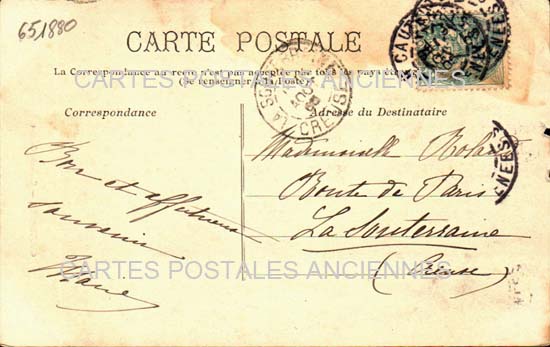 651880
CARTE POSTALE
La Correspondance au recto n'est pas acceptée par tous les pays étrangers
(Se renseigner à la Poste)
CARTES POSTALES ANCIENNES
Correspondance
Adresse du Destinataire
LA SOUTERRAINE
CREUSE
CAUT
Bon et affectueux
souvenir
Mademoiselle Roland
Route de Paris
La Souterraine
(Creuse)
CARTES POSTALES ANCIENNES